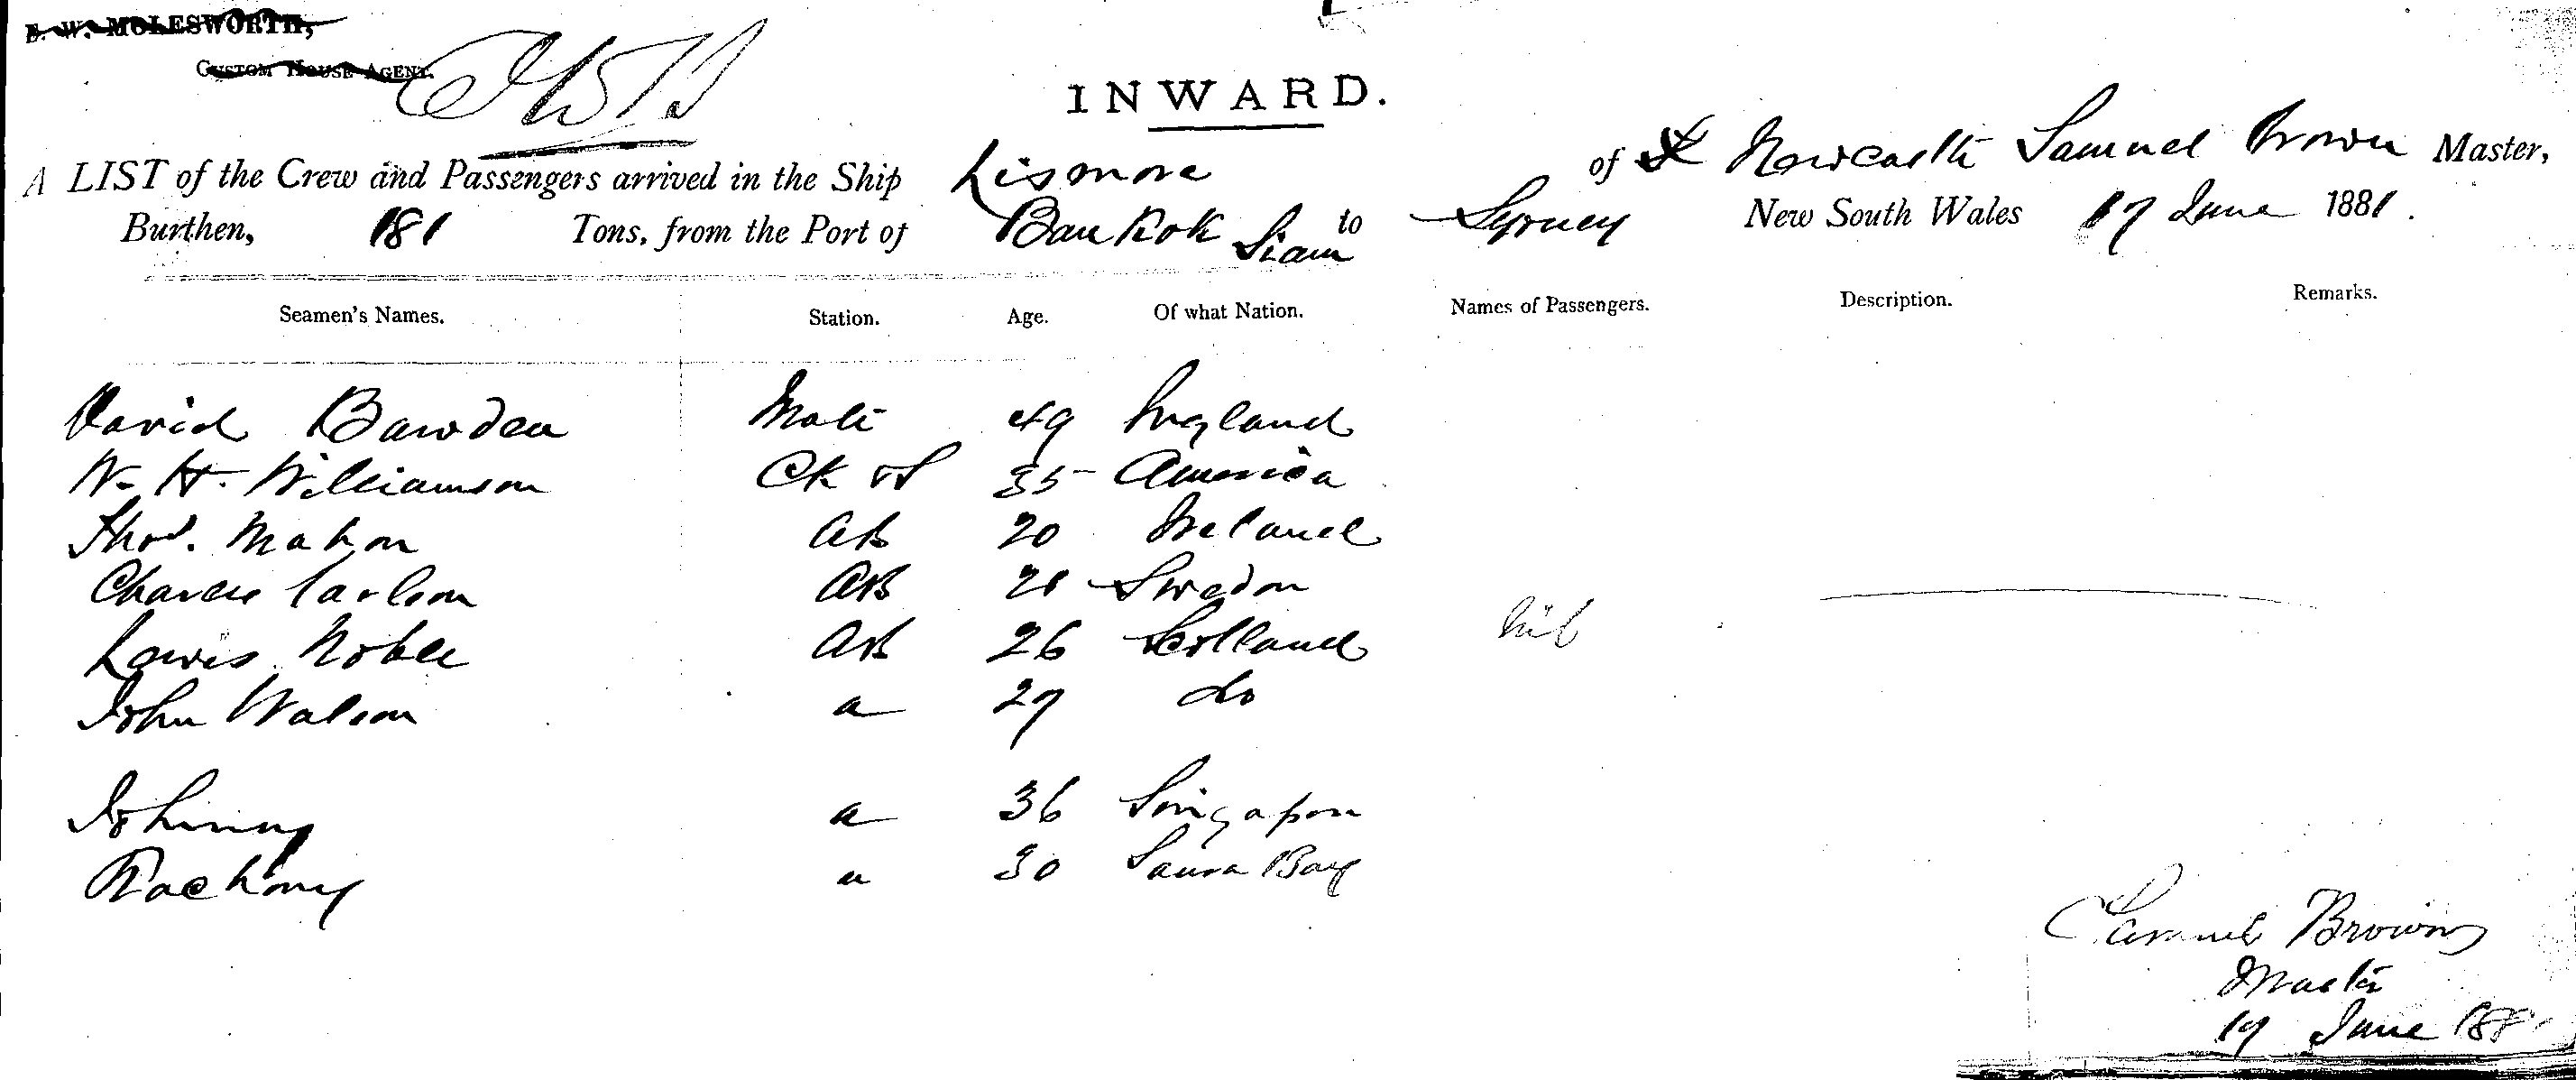 E. W. MOLESWORTH,
CUSTOM HOUSE AGENT.
INWARD.
A LIST of the Crew and Passengers arrived in the Ship Lismore of Newcastle Samuel Brown Master,
Burthen, 181 Tons, from the Port of Bankok Siam to Sydney New South Wales 17 June 1881.
Seamen's Names. Station. Age. Of what Nation. Names of Passengers. Description. Remarks.
David Bawden Mate 49 England
W. H. Williamson Ck & S 35 America
Thos. Mahon AB 20 Ireland
Charles Carlson AB 28 Sweden
Lewis Noble AB 26 Scotland nil
John Watson a 27 do
Johnny a 36 Singapore
a 30 Bay
Samuel Brown
Master
17 June 188